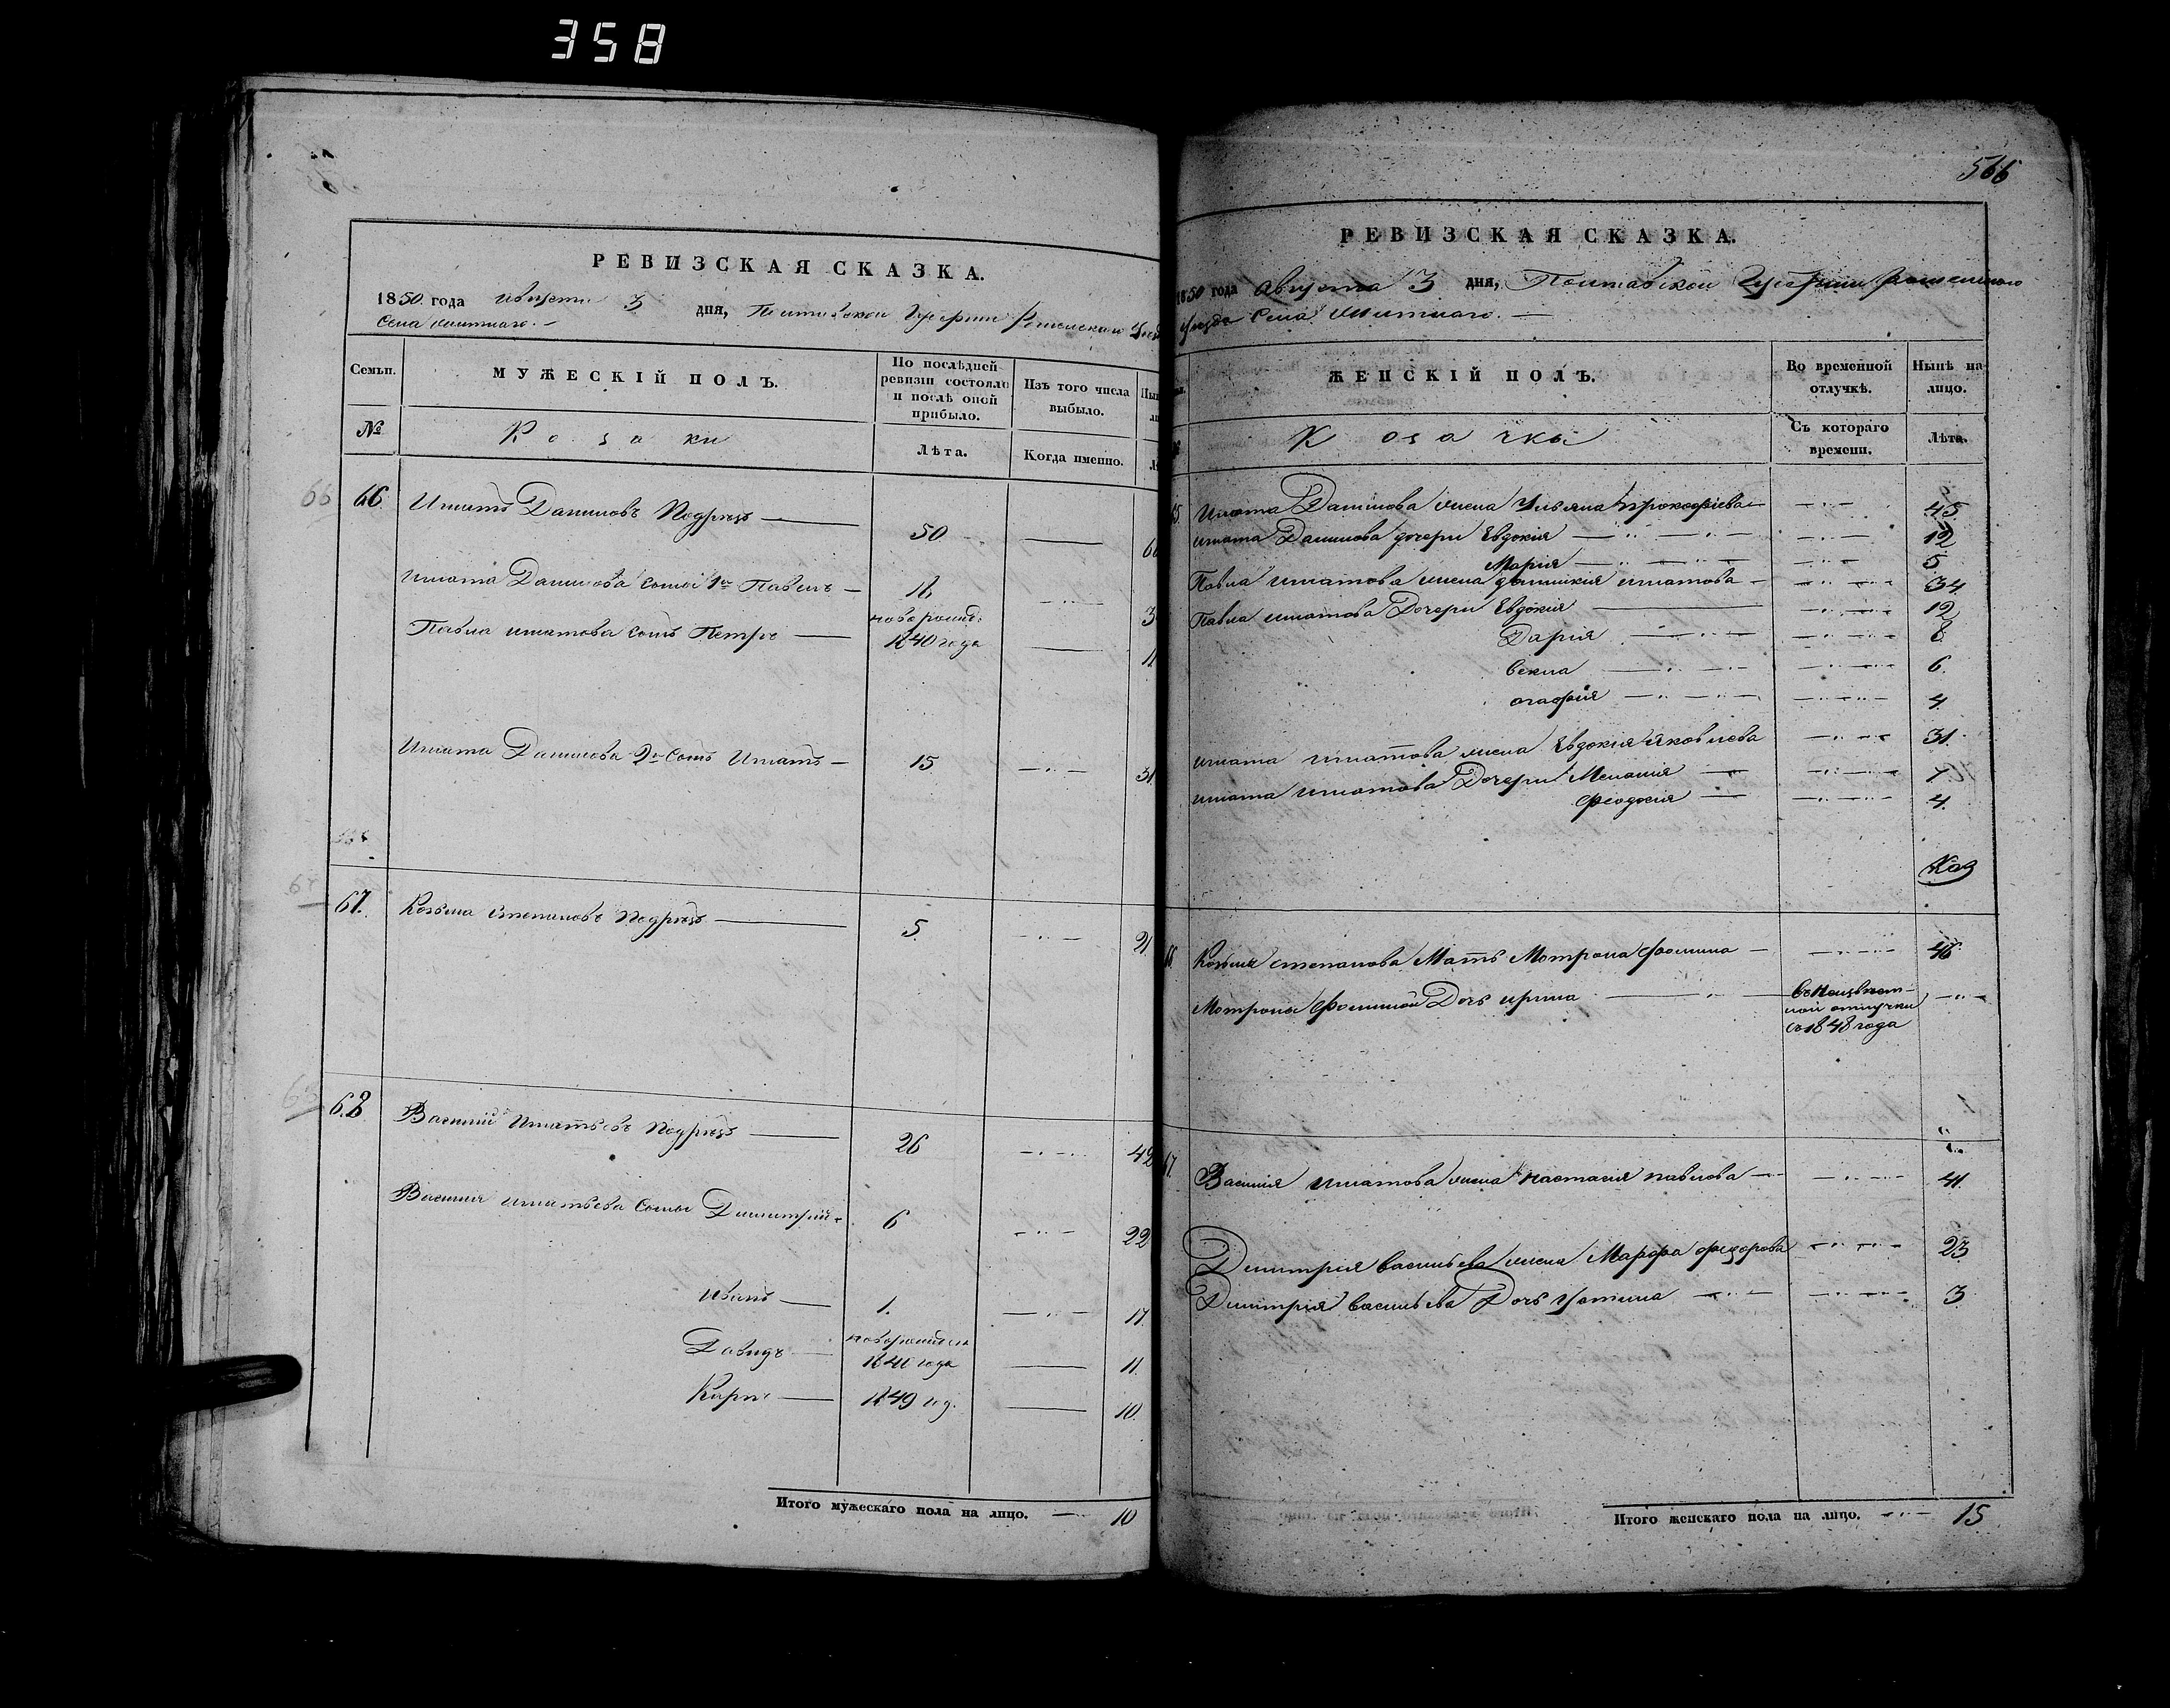 358
РЕВИЗСКАЯ СКАЗКА.
1850 года августа 3 дня, Полтавской Губернии
Села
Семьи.
МУЖЕСКІЙ ПОЛЪ.
По послѣдней ревизіи состояло и послѣ оной прибыло.
Изъ того числа выбыло.
№
Козаки
Лѣта.
Когда именно.
66 Игнатъ Даниловъ Подрѣзъ 50
Игната Данилова сыны 1й Павелъ 18
Павла Игнатова сынъ Петръ новорожд. 1840 года 11
Игната Данилова 2й сынъ Игнатъ 15 31
67. Козьма Степановъ Подрѣзъ 5. 21
68 Василій Игнатьевъ Подрѣзъ 26 42
Василія Игнатьева сыны Димитрій 6 22
Иванъ 1. 17
Давидъ новорожден 1840 года 11.
Карпъ 1849 год. 10.
Итого мужескаго пола на лицо. 10
566
РЕВИЗСКАЯ СКАЗКА.
1850 года Августа 3 дня, Полтавской Губерніи
уезда Села
ЖЕНСКІЙ ПОЛЪ.
Во временной отлучкѣ.
Нынѣ на лицо.
Козачки
Съ котораго времени.
Лѣта.
Игната Данилова жена Ульяна Прокофіева 45
Игната Данилова дочери Евдокія 12
Марія 5
Павла Игнатова жена Игнатова 34.
Павла Игнатова Дочери Евдокія 12
Дарія 8
Векла 6.
Агафія 4
Игната Игнатова жена Евдокія Яковлева 31.
Игната Игнатова Дочери Меланія 7.
Феодосія 4.
Козьмы Степанова Мать Мотрона Фомина 46
Мотроны Фоминой Дочь Ирина въ неизвестной отлучки съ 1848 года
Василія Игнатова жена Настасія Павлова 41.
Димитрія Васильева жена Марфа Федорова 23
Димитрія Васильева Дочь Устина 3
Итого женскаго пола на лицо. 15